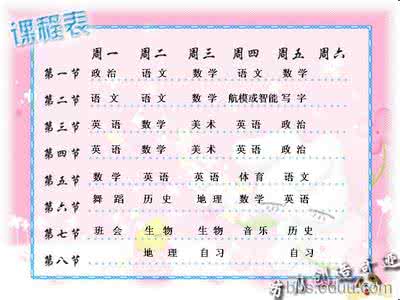 课程表
周一 周二 周三 周四 周五 周六
第一节 政治 语文 数学 语文 数学
第二节 语文 语文 数学 航模或智能 写字
第三节 英语 数学 美术 英语 政治
第四节 英语 数学 美术 英语 英语
第五节 数学 英语 英语 体育 语文
第六节 舞蹈 历史 地理 数学 英语
第七节 班会 生物 生物 音乐 历史
第八节 地理 自习 自习
创造奇迹